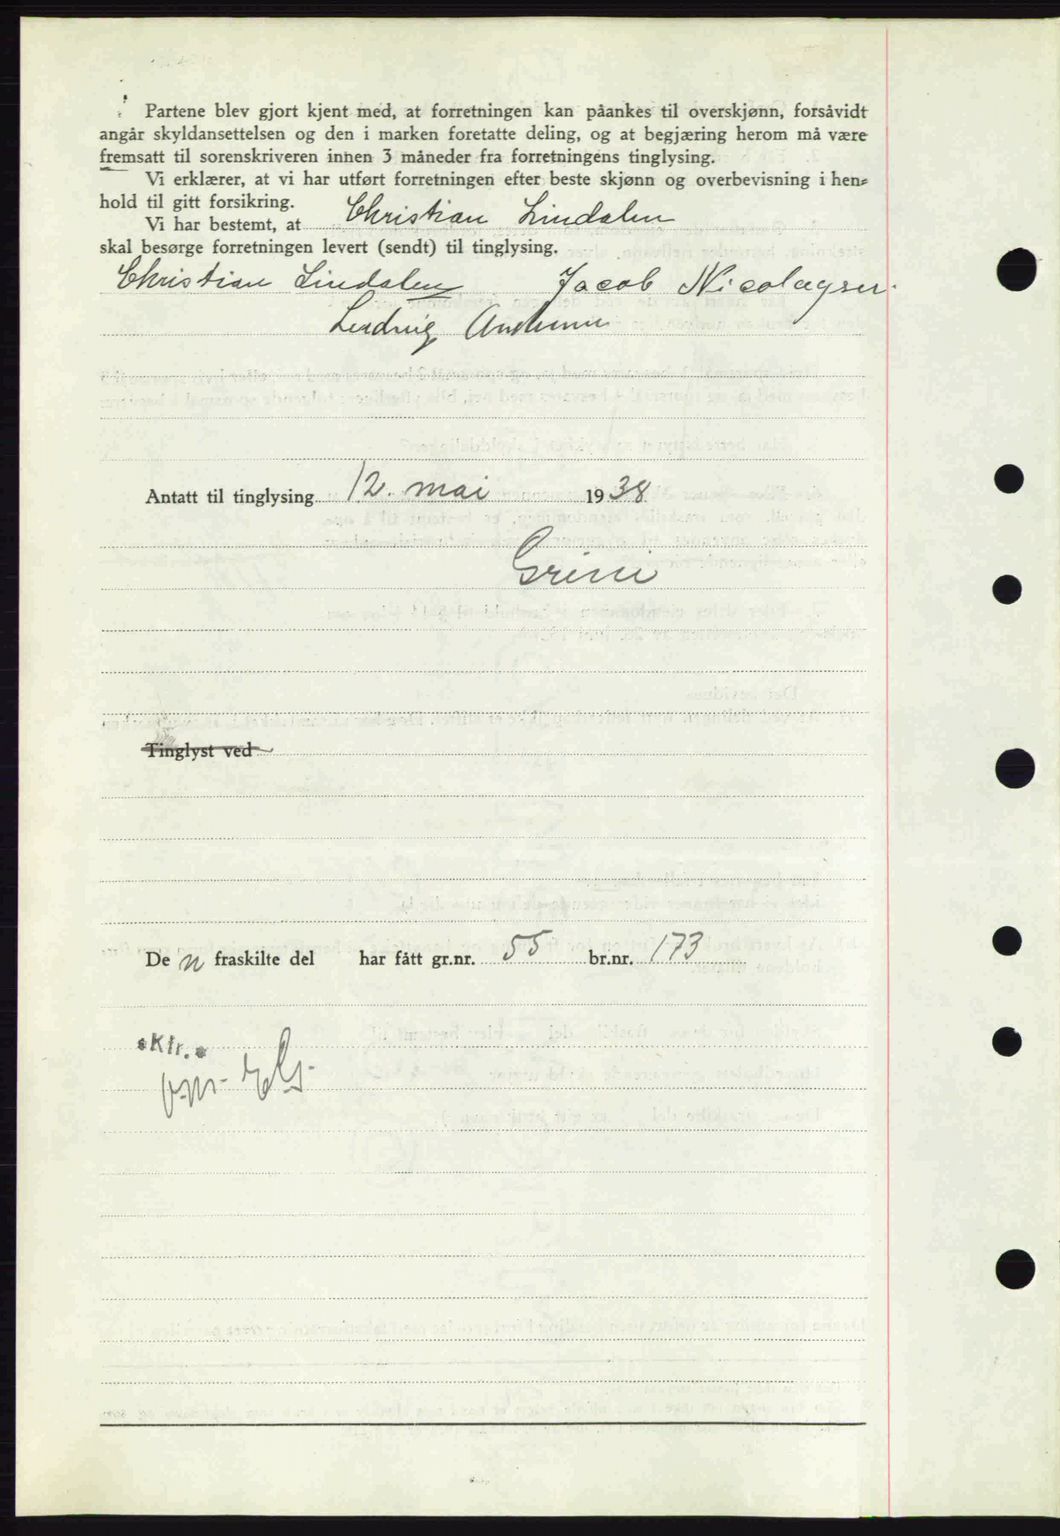 Partene blev gjort kjent med, at forretningen kan påankes til overskjønn, forsåvidt
angår skyldansettelsen og den i marken foretatte deling, og at begjæring herom må være
fremsatt til sorenskriveren innen 3 måneder fra forretningens tinglysing.
Vi erklærer, at vi har utført forretningen efter beste skjønn og overbevisning i hen=
hold til gitt forsikring.
Vi har bestemt, at Christian Lindalen
skal besørge forretningen levert (sendt) til tinglysing.
Christian Lindalen Jacob Nicolaysen
Ludvig
Antatt til tinglysing 12. mai 1938
Grini
Tinglyst ved
De n fraskilte del har fått gr.nr. 55 br.nr. 173
*Ktr.*